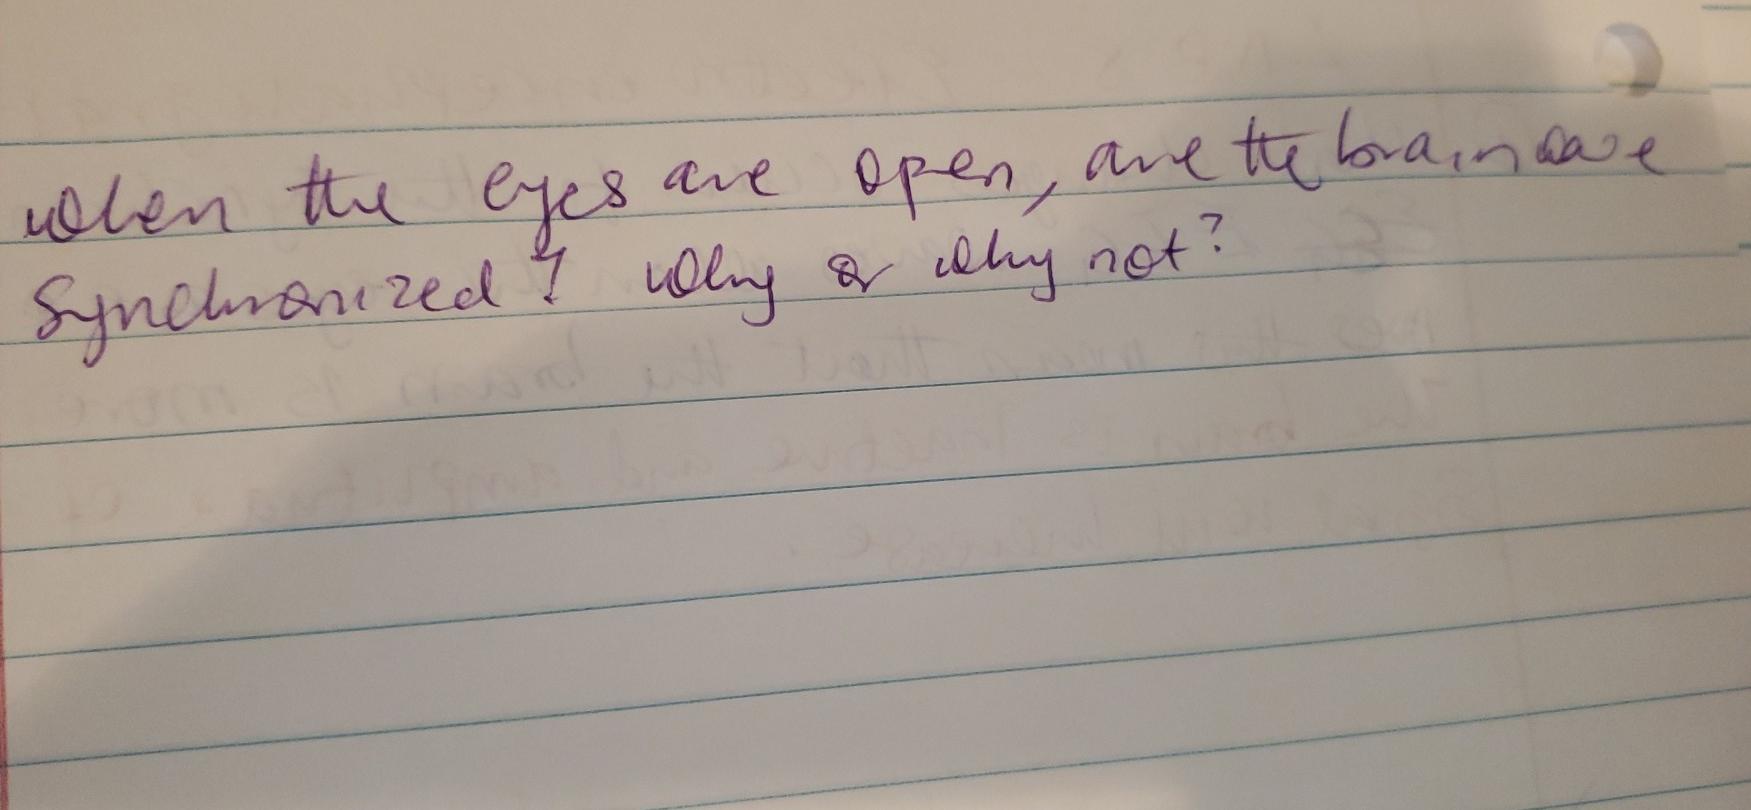 When the eyes are open, are the brain wave
Synchronized? Why or why not?